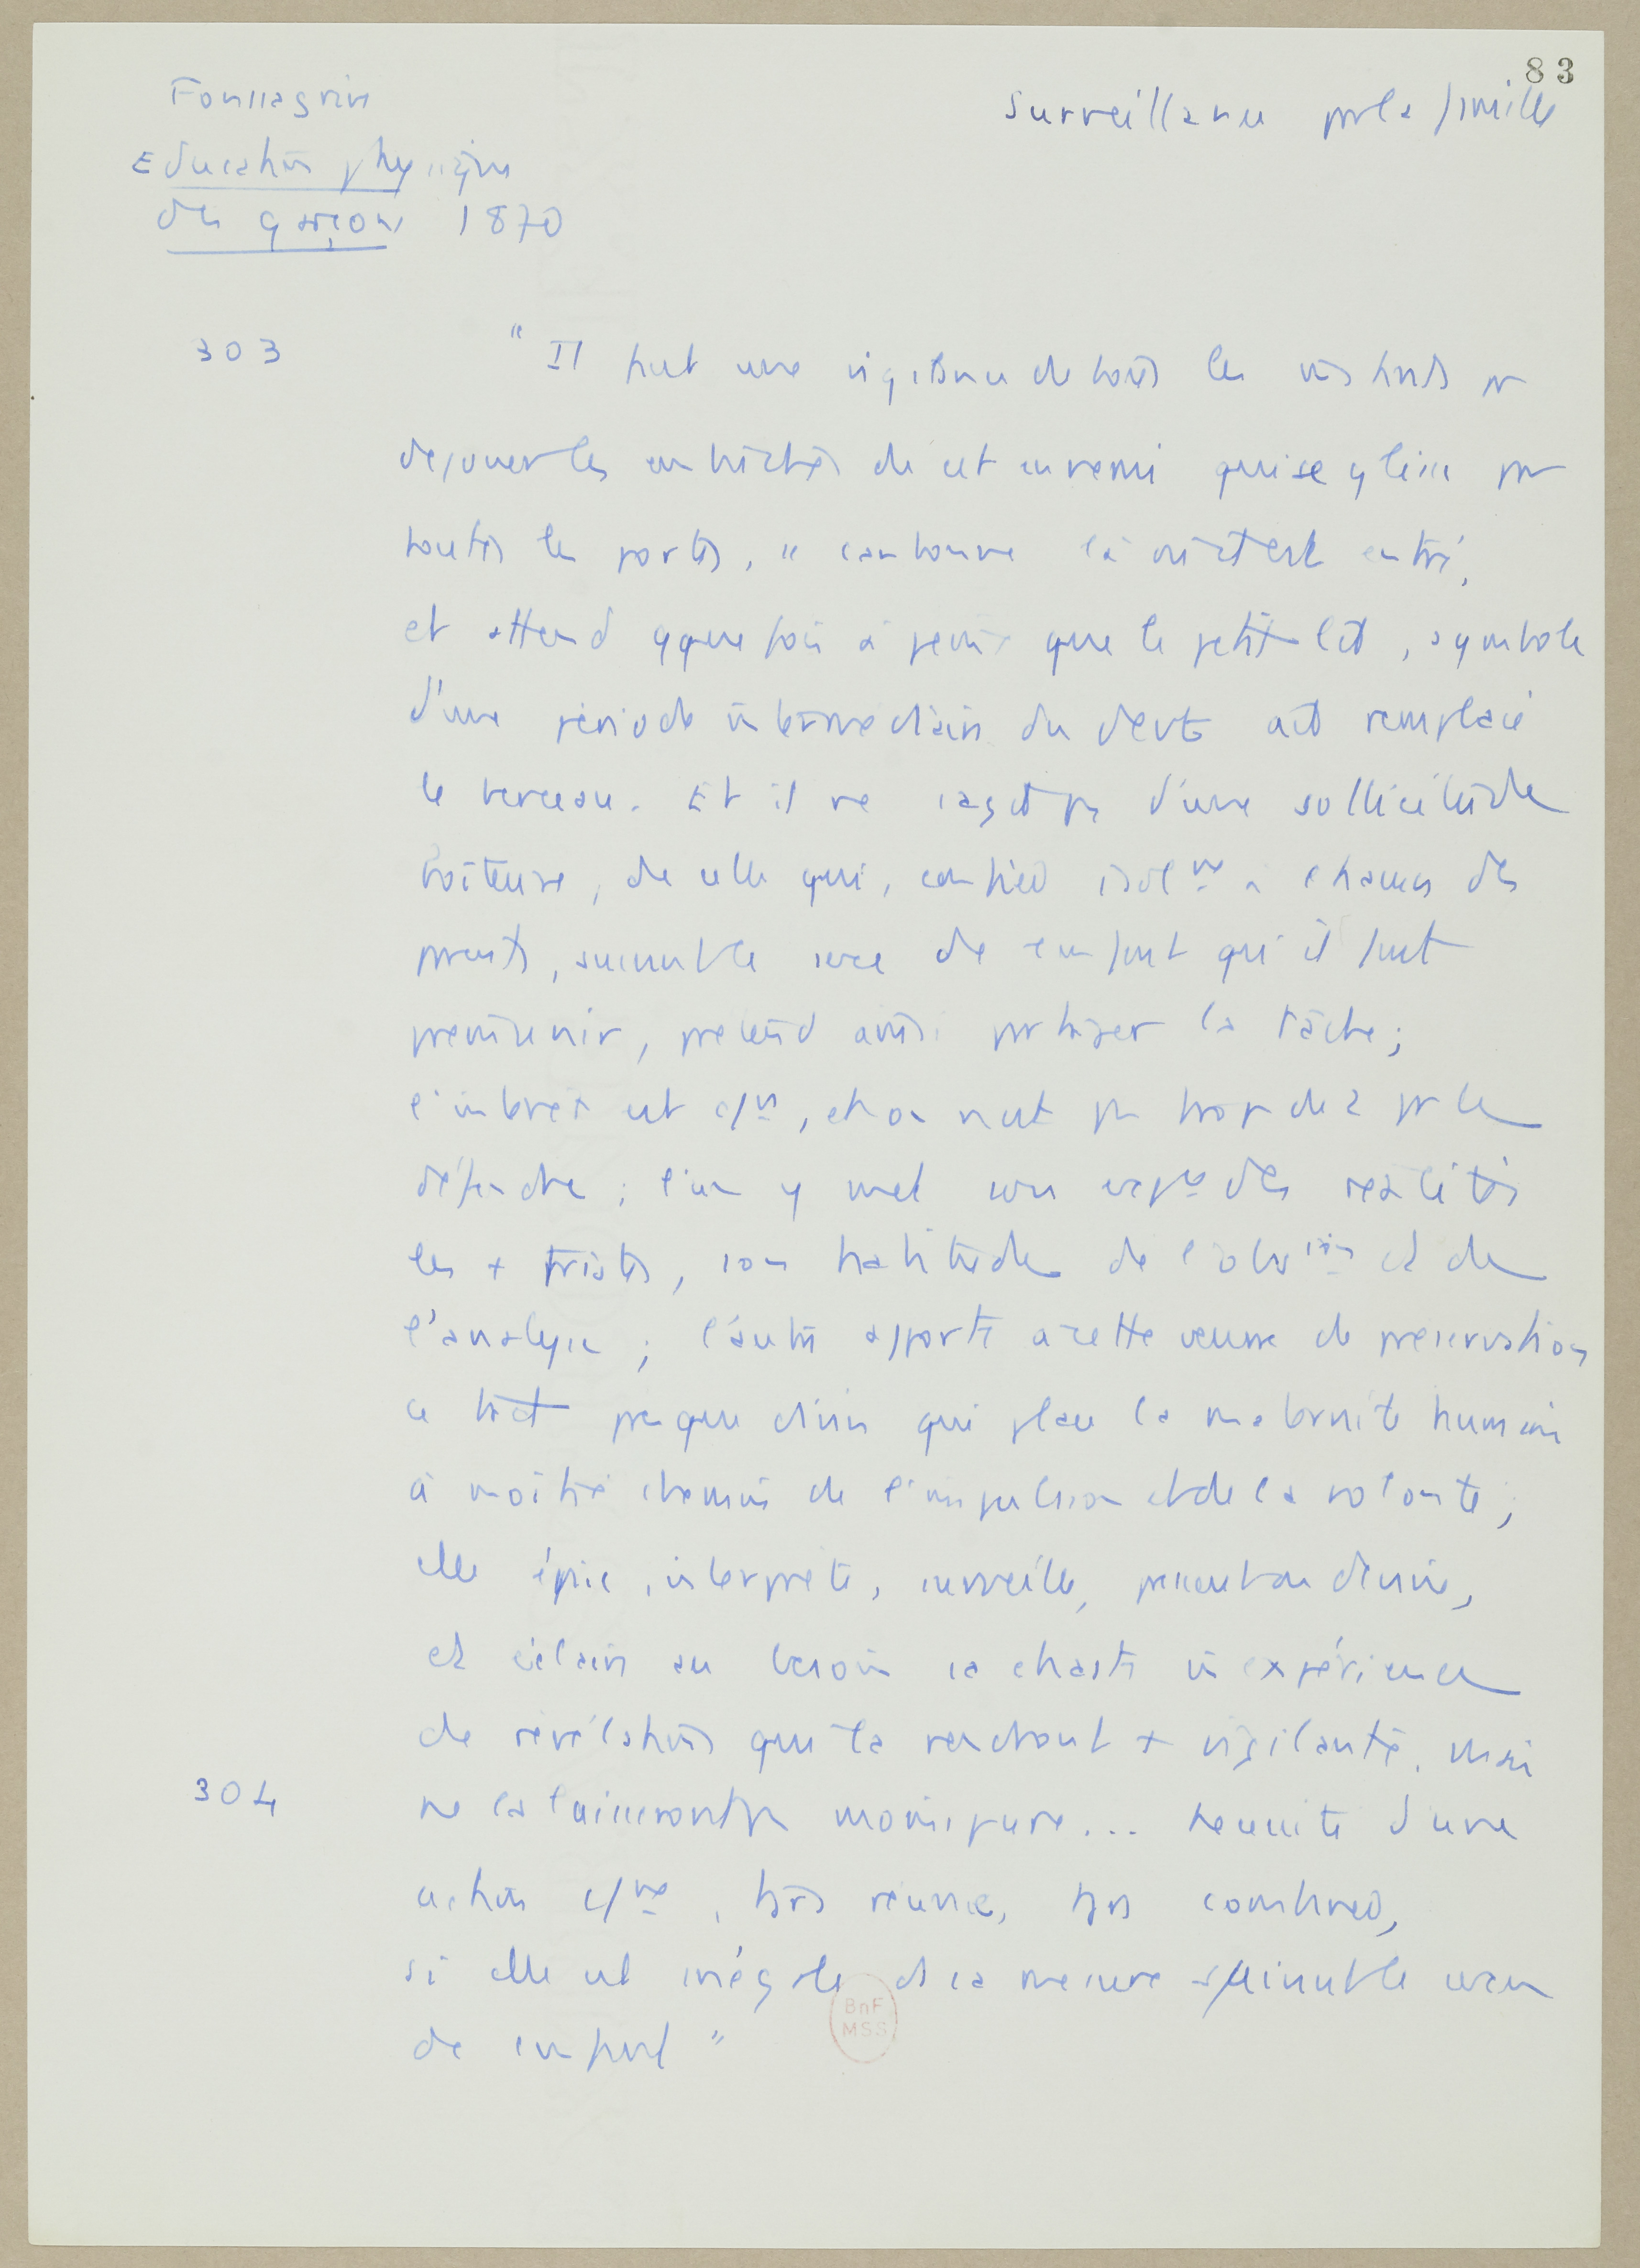 83
Fonssagrives
Surveillance par la famille
Education physique
des garçons 1870
303
"Il faut une vigilance de tous les instants pr
dejouer les embûches de cet ennemi qui se glisse par
toutes les portes, se cantonne là où il est entré,
et attend qquefois à peine que le petit lit, symbole
d'une période intermédiaire du devt ait remplacé
le berceau. Et il ne s'agit pas d'une sollicitude
boiteuse, de celle qui, confiée isolmt à chacun des
parents, suivant le sexe de l'enfant qu'il faut
prémunir, prétend ainsi partager la tâche;
l'intérêt est cmn, et on n'est pas trop de 2 pr le
défendre ; l'un y met son expce des réalités
les + tristes, son habitude de l'obsion et de
l'analyse ; l'autre apporte à cette œuvre de préservation
ce tact presque divin qui place la maternité humaine
à moitié chemin de l'impulsion et de la volonté ;
elle épie, interprète, surveille, pressent ou devine,
et éclaire au besoin sa chaste inexpérience
de révélations qui la rendront + vigilante, mais
304
ne la laisseront pas moins pure... nécessité d'une
action cmne, très réunie, très combinée,
si elle est inégale ds sa mesure suivant le sexe
de l'enfant"
BnF
MSS